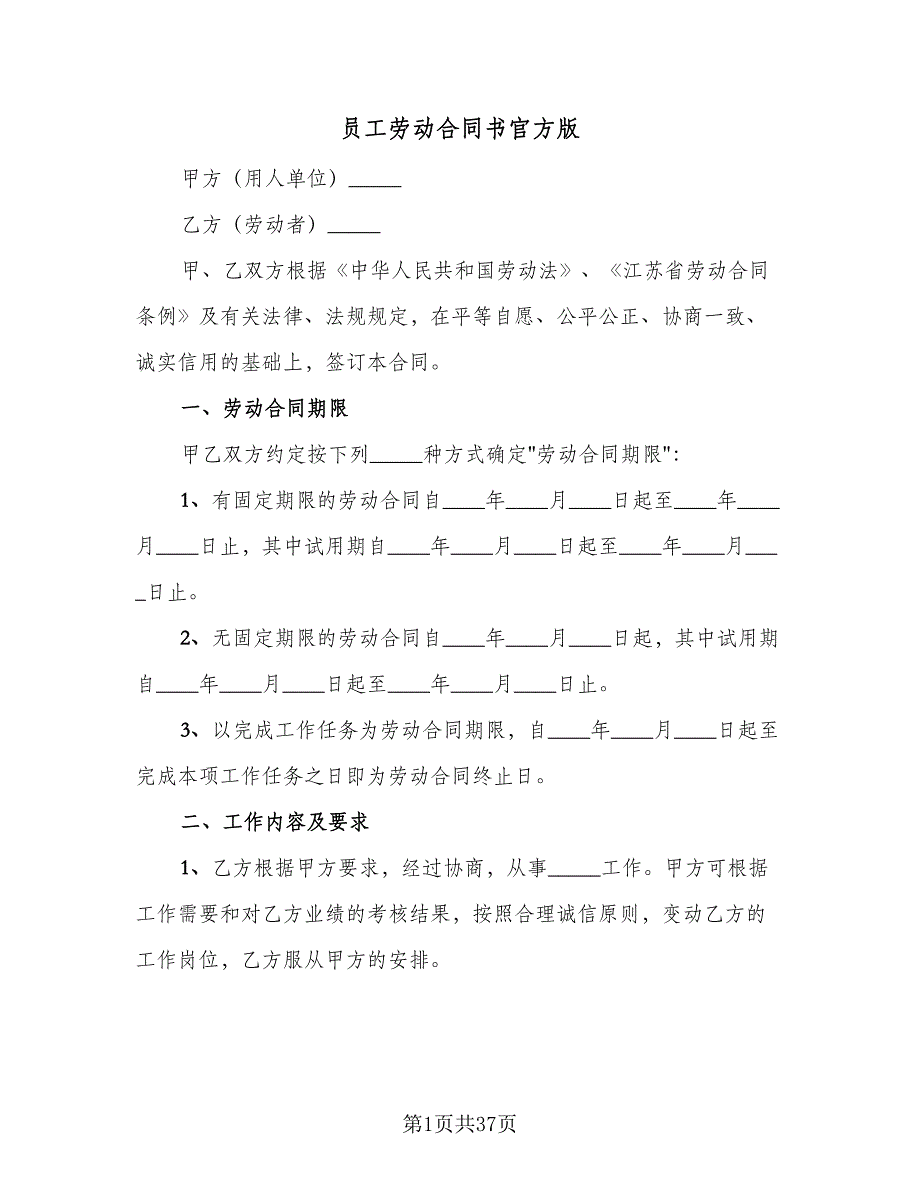 员工劳动合同书官方版
甲方（用人单位）_____
乙方（劳动者）_____
甲、乙双方根据《中华人民共和国劳动法》、《江苏省劳动合同
条例》及有关法律、法规规定，在平等自愿、公平公正、协商一致、
诚实信用的基础上，签订本合同。
一、劳动合同期限
甲乙双方约定按下列_____种方式确定"劳动合同期限"：
1、有固定期限的劳动合同自____年____月____日起至____年____
月____日止，其中试用期自____年____月____日起至____年____月___
_日止。
2、无固定期限的劳动合同自____年____月____日起，其中试用期
自____年____月____日起至____年____月____日止。
3、以完成工作任务为劳动合同期限，自____年____月____日起至
完成本项工作任务之日即为劳动合同终止日。
二、工作内容及要求
1、乙方根据甲方要求，经过协商，从事_____工作。甲方可根据
工作需要和对乙方业绩的考核结果，按照合理诚信原则，变动乙方的
工作岗位，乙方服从甲方的安排。
第1页共37页